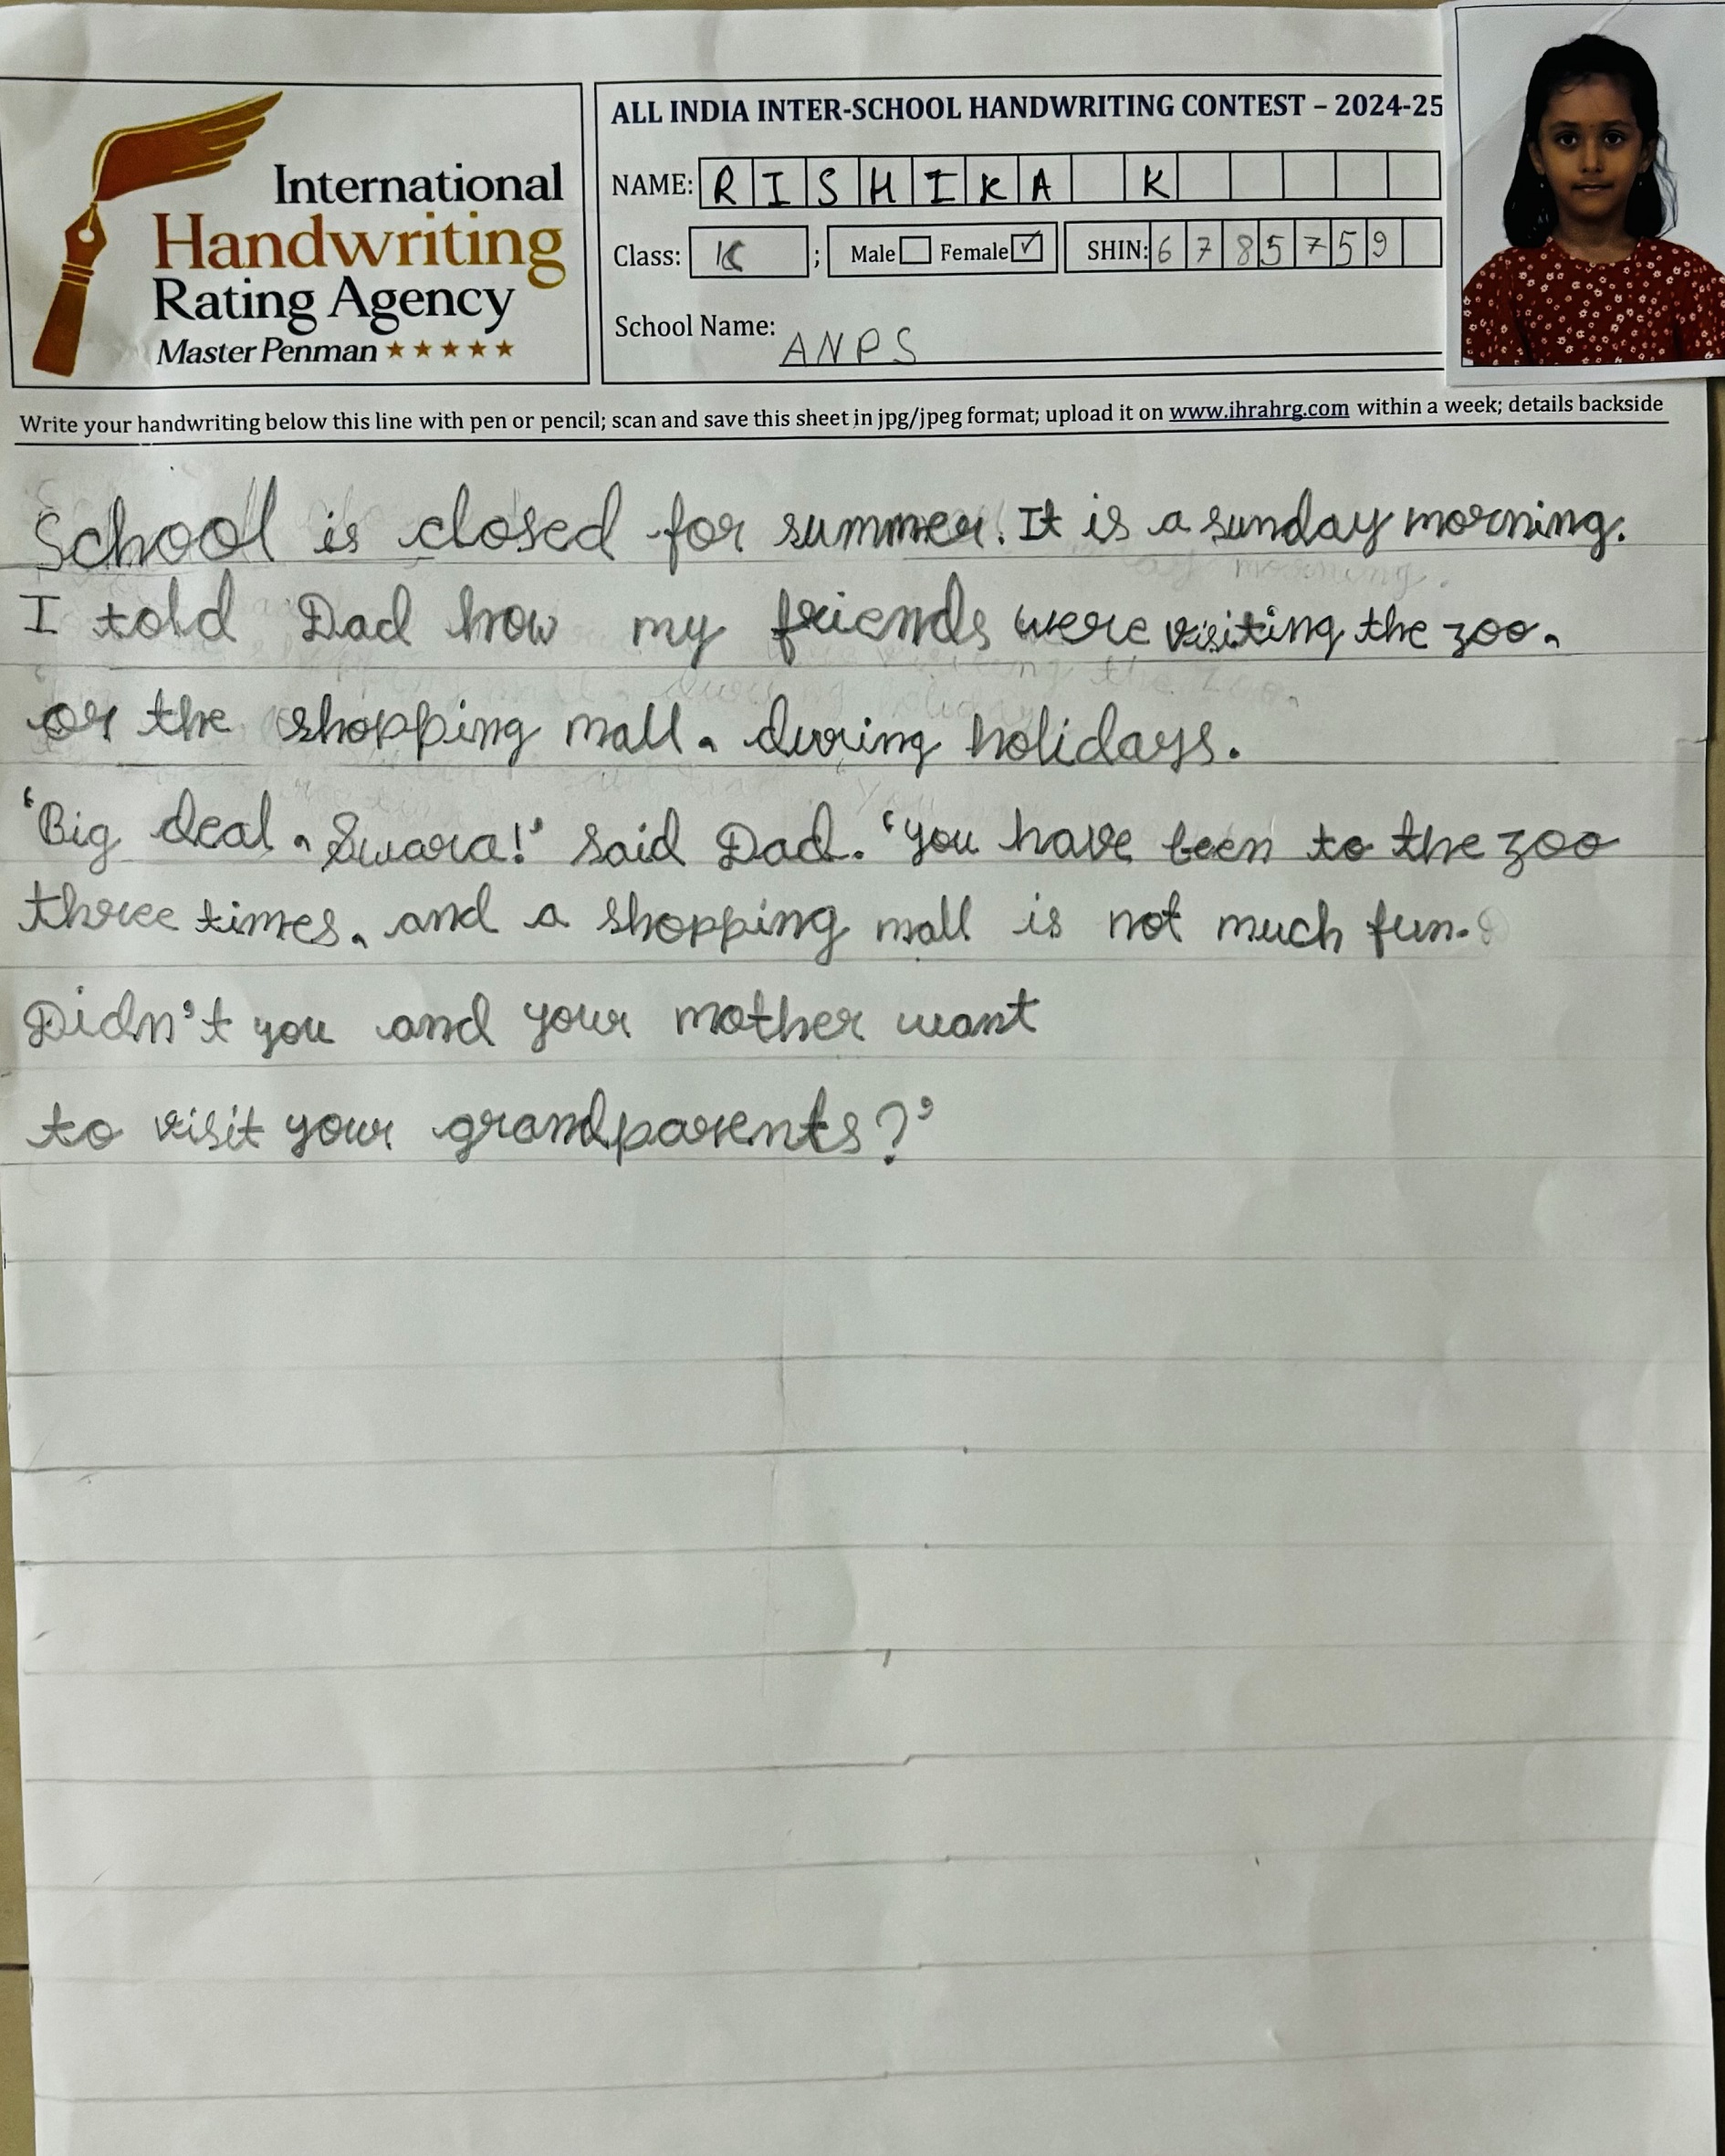 International
Handwriting
Rating Agency
Master Penman
ALL INDIA INTER-SCHOOL HANDWRITING CONTEST – 2024-25
NAME: RISHIKA K
Class: ; Male Female ✓ SHIN: 6785759
School Name: ANPS
Write your handwriting below this line with pen or pencil; scan and save this sheet in jpg/jpeg format; upload it on www.ihrahrg.com within a week; details backside
School is closed for summer. It is a sunday morning.
I told Dad how my friends were visiting the zoo,
or the shopping mall, during holidays.
‘Big deal, Swara!’ said Dad. ‘you have been to the zoo
three times, and a shopping mall is not much fun.
Didn't you and your mother want
to visit your grandparents?’